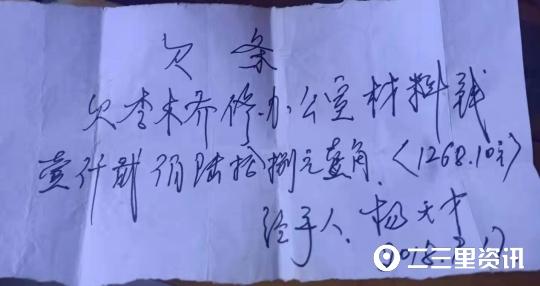 欠条
欠李木齐修办公室材料钱
壹仟贰佰陆拾捌元壹角.(1268.10元)
经手人、杨天才
2018.
二三里资讯